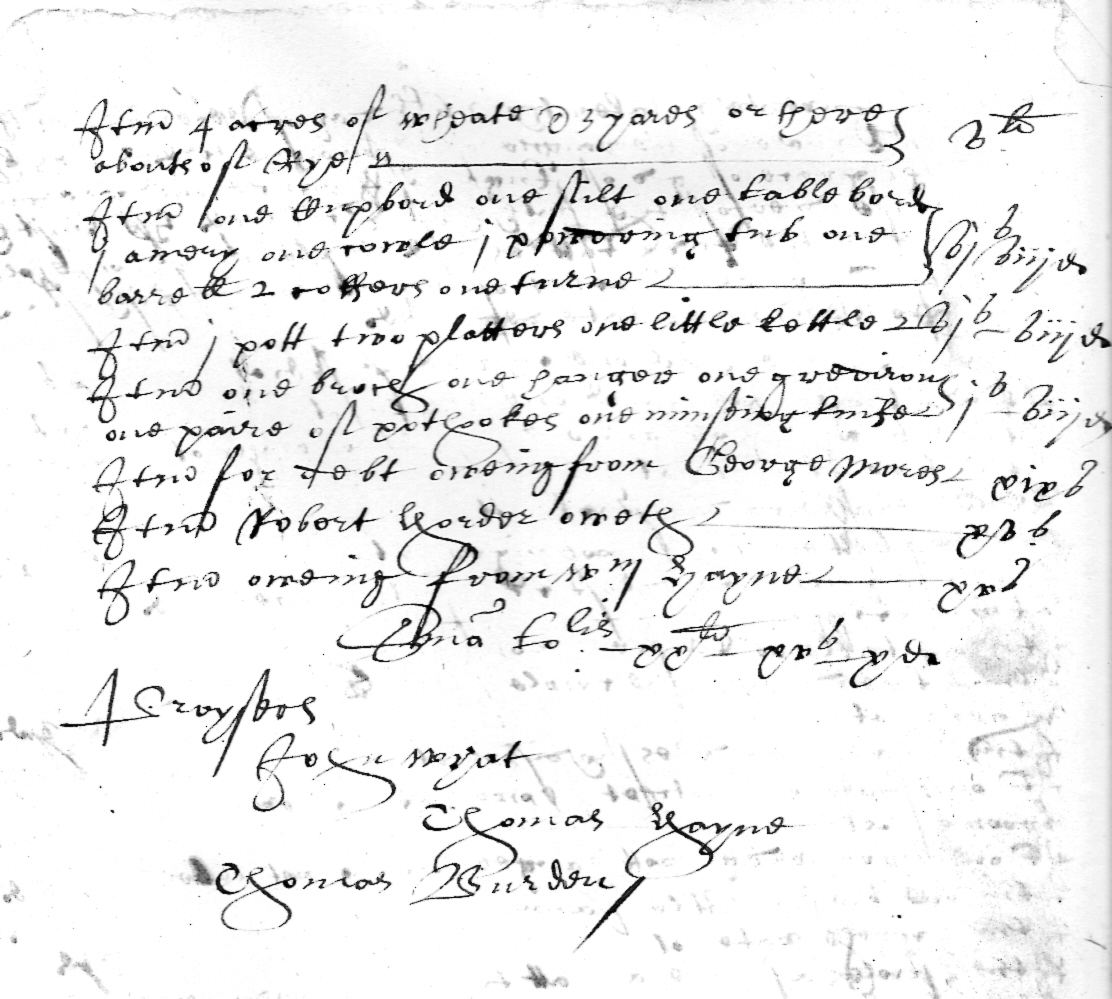 Itm 4 acres of wheate & 3 yards or there
abouts of Rye vli
Itm one Cupbord one silt one table bord
j amery one cowle j powdring tub one
barrell 2 coffers one turne vjs viijd
Itm j pott two platters one little kettle vjs viijd
Itm one broch one hanger one grediron
one paire of pothookes one minseing knife js viijd
Itm for debt oweing from George Mores xixs
Itm Robert Horder oweth xvs
Itm oweing from Wm Hayne xvs
Sma tolis xxli xvs xd
Praysers
John Wyat
Thomas Hayne
Thomas Burden